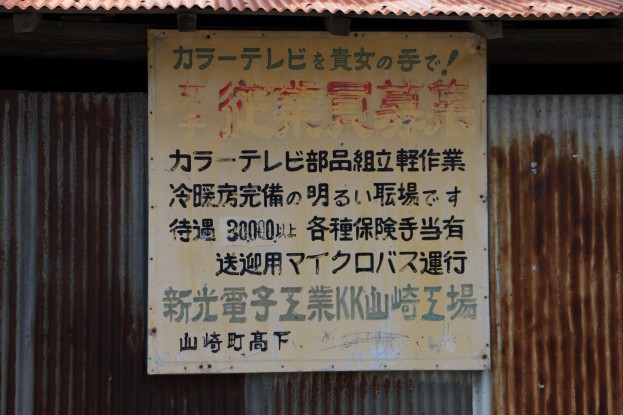 カラーテレビを貴女の手で!
女子 従業員募集
カラーテレビ部品組立軽作業
冷暖房完備の明るい職場です
待遇 30000以上 各種保険手当有
送迎用マイクロバス運行
新光電子工業KK山崎工場
山崎町高下